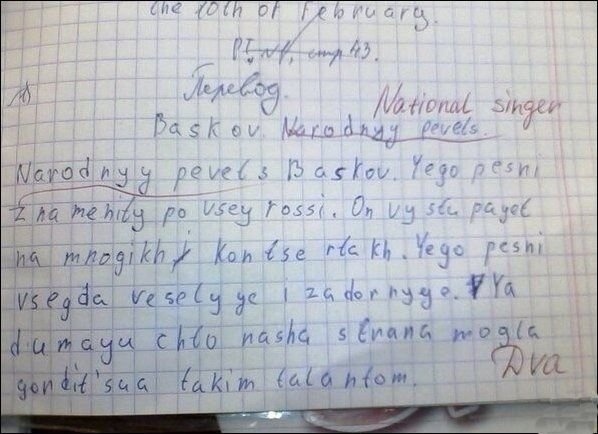 the 10th of February.
P.I., N1, стр 43.
Перевод.
National singer
Baskov. Narodnyy pevets.
Narodnyy pevets Baskov. Yego pesni
znamenity po vsey rossi. On vystupayet
na mnogikh kontsertakh. Yego pesni
vsegda veselyye i zadornyye. Ya
dumayu chto nasha strana mogla
gordit'sua takim talantom.
Dva